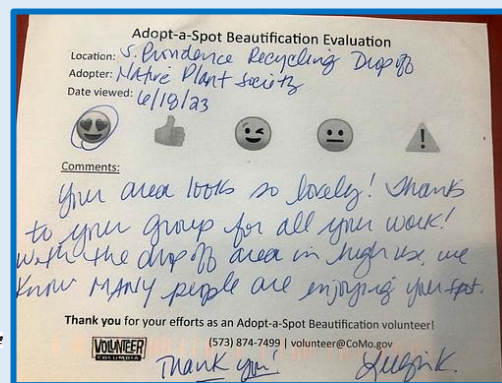 Adopt-a-Spot Beautification Evaluation
Location: S. Providence Recycling Drop off
Adopter: Native Plant Society
Date viewed: 6/18/23
Comments:
Your area looks so lovely! Thanks
to your group for all your work!
With the drop off area in high use, we
know MANY people are enjoying your spot.
Thank you for your efforts as an Adopt-a-Spot Beautification volunteer!
VOLUNTEER
COLUMBIA
(573) 874-7499 | volunteer@CoMo.gov
Thank you!
K.